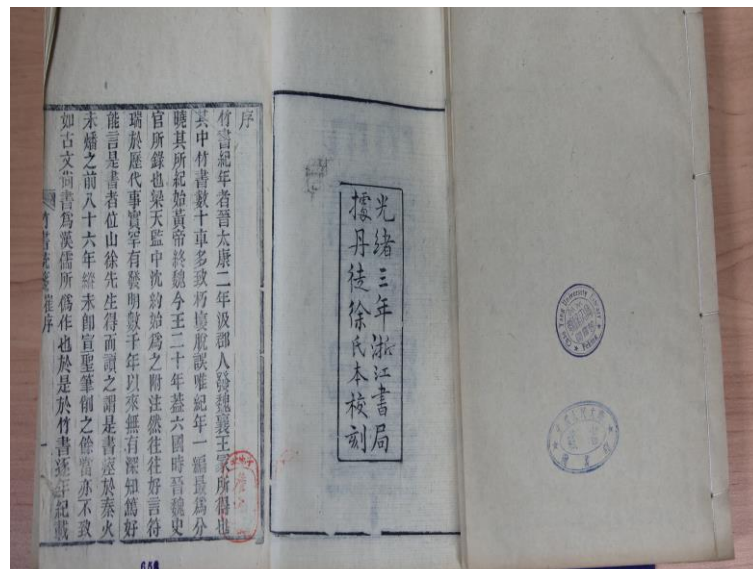 光緒三年浙江書局
據丹徒徐氏本校刻
序
竹書紀年者晉太康二年汲郡人發魏襄王冢所得也
其中竹書數十車多致朽脫誤唯紀年一編最爲分
曉其所紀始黃帝終魏今王二十年葢六國時晉魏史
官所錄也梁天監中沈約始爲之附注然往往好言符
瑞於歷代事實罕有發明數千年以來無有深知篤好
能言是書者位山徐先生得而讀之謂是書於秦火
未燔之前八十六年未卽宣聖筆削之餘亦不致
如古文尙書爲漢儒所僞作也於是於竹書逐年紀載
竹書統箋 序